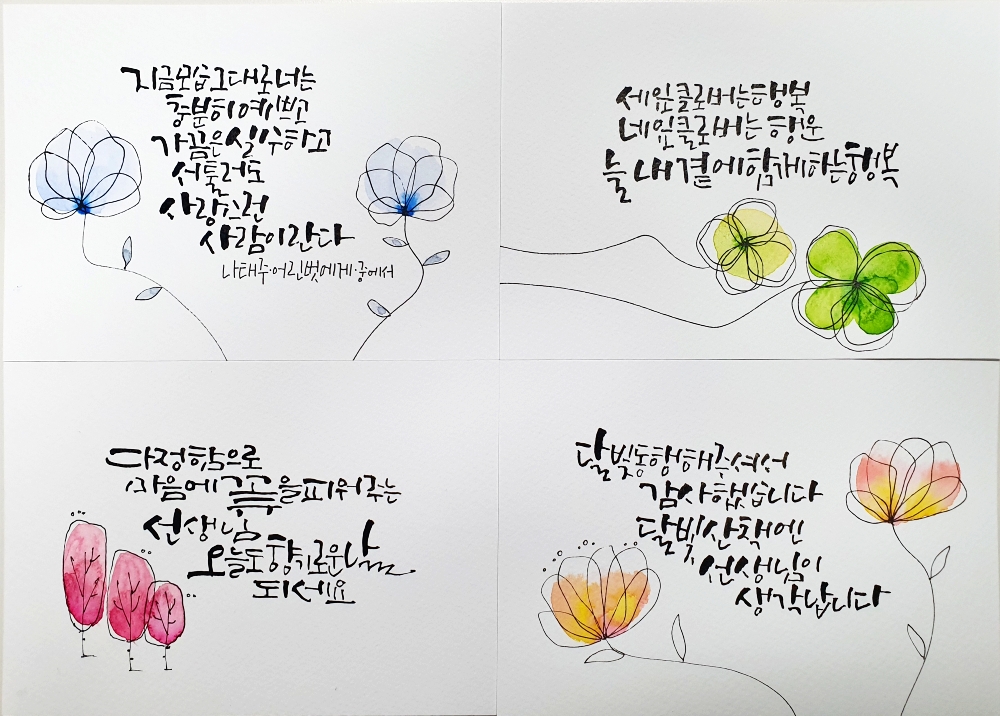 지금모습그대로너는
충분히예쁘고
가끔은실수하고
서툴러도
사랑스런
사람이란다
나태주·어린벗에게·중에서
세잎클로버는행복
네잎클로버는 행운
늘 내 곁에함께하는행복
다정함으로
마음에 꽃을피워주는
선생님
오늘도향기로운날
되세요
달빛동행해주셔서
감사했습니다
달빛산책엔
선생님이
생각납니다